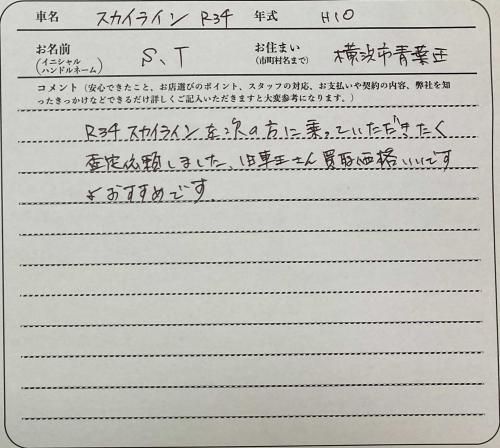 車名 スカイライン R34 年式 H10
お名前 (イニシャル ハンドルネーム) S、T お住まい (市町村名まで) 横浜市青葉区
コメント(安心できたこと、お店選びのポイント、スタッフの対応、お支払いや契約の内容、弊社を知
ったきっかけなどできるだけ詳しくご記入いただきますと大変参考になります。)
R34スカイラインを次の方に乗っていただきたく
査定依頼しました、旧車王さん買取価格いいです
よおすすめです。